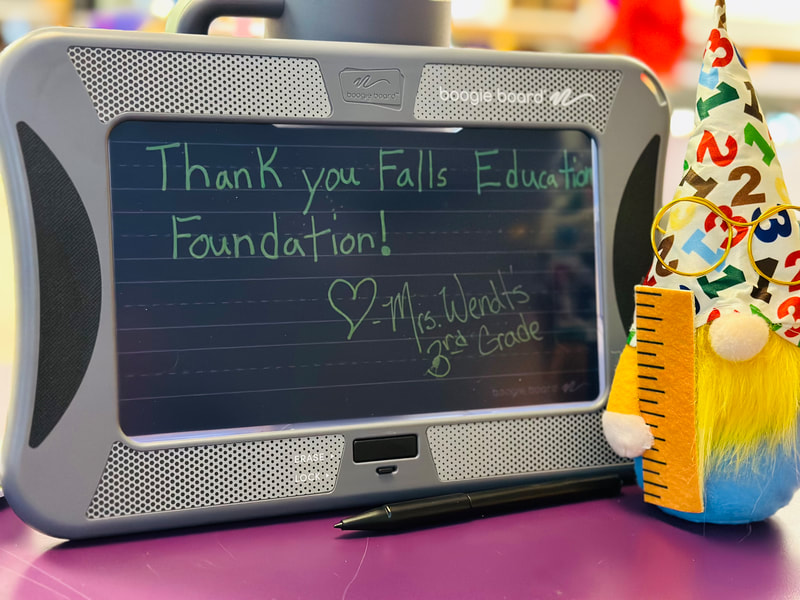 boogie board
boogie board
Thank you Falls Education
Foundation!
- Mrs. Wendt's
3rd Grade
boogie board
ERASE
LOCK